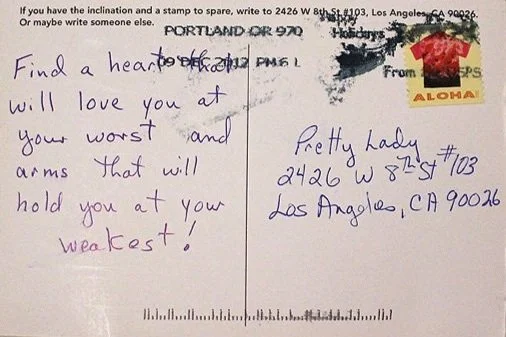 If you have the inclination and a stamp to spare, write to 2426 W 8th St #103, Los Angeles, CA 90026.
Or maybe write someone else.
PORTLAND OR 970
09 DEC 2012 PM 6 L
Happy
Holidays
From USPS
ALOHA
Find a heart that
will love you at
your worst and
arms that will
hold you at your
weakest!
Pretty Lady
2426 W 8th St #103
Los Angeles, CA 90026